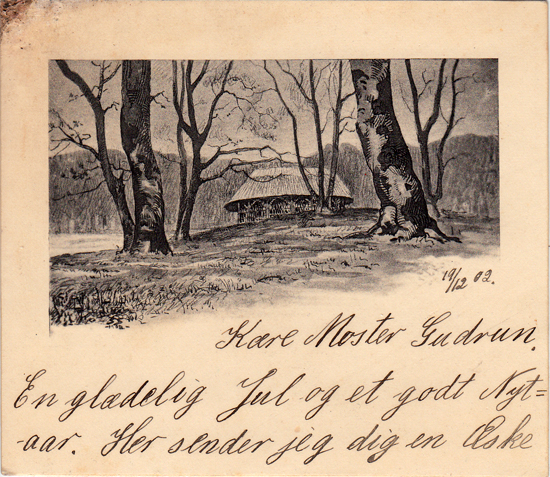 19/12 02.
Kære Moster Gudrun.
En glædelig Jul og et godt Nyt=
-aar. Her sender jeg dig en Æske